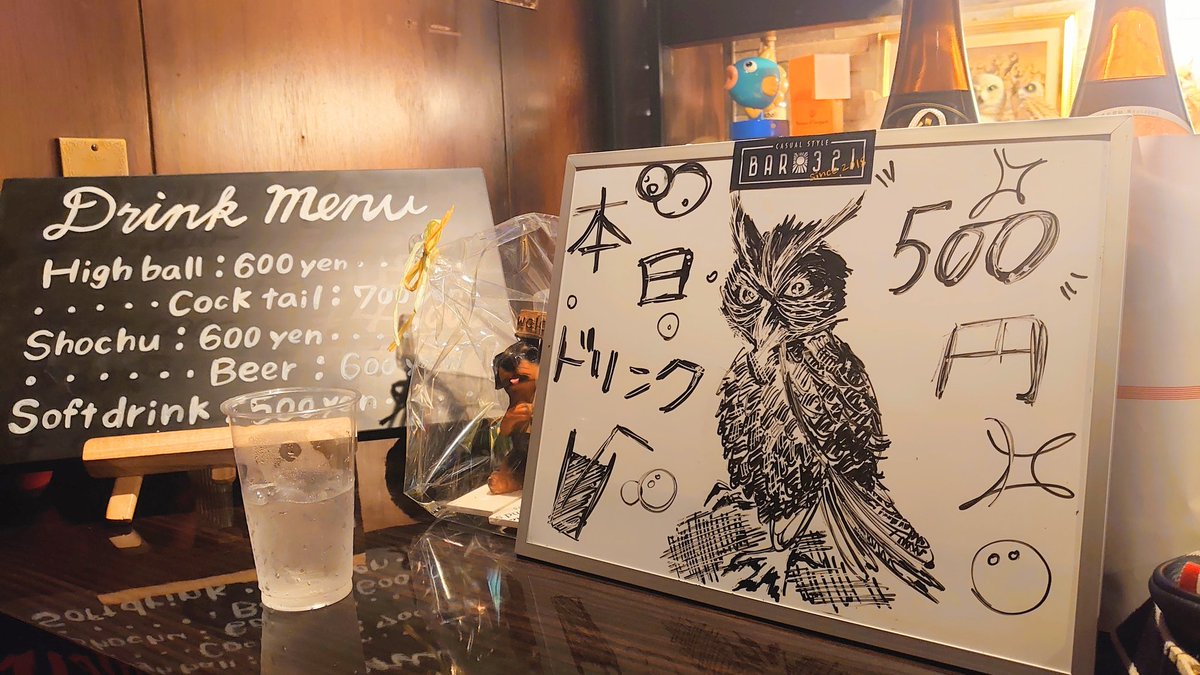 Drink Menu
High ball : 600 yen . .
. . . . . Cock tail : 700
Shochu : 600 yen . . .
. . . . . . Beer : 600
Soft drink 500 yen .
CASUAL STYLE
BAR 321
since 2018
本日
ドリンク
500
円